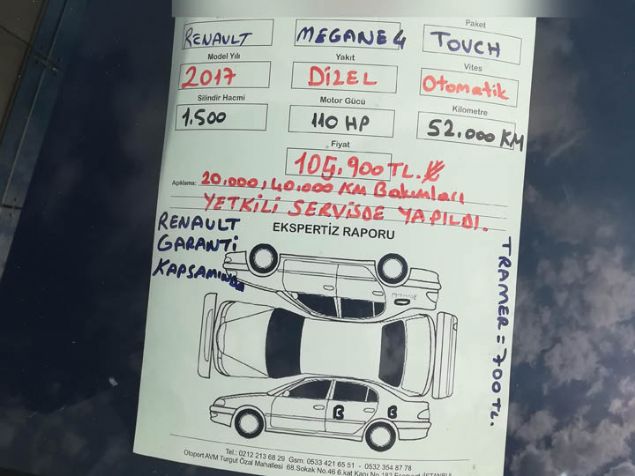 Paket
RENAULT MEGANE 4 TOUCH
Model Yılı Yakıt Vites
2017 DİZEL Otomatik
Silindir Hacmi Motor Gücü Kilometre
1.500 110 HP 52.000 KM
Fiyat
105.900 TL.
Açıklama: 20.000, 40.000 KM Bakımları
YETKİLİ SERVİSDE YAPILDI.
EKSPERTİZ RAPORU
RENAULT
GARANTİ
KAPSAMINDA
TRAMER = 700 TL.
B B
Tel.: 0212 213 68 29 Gsm: 0533 421 65 51 - 0532 354 87 78
Otoport AVM Turgut Özal Mahallesi 68.Sokak No.46 6.kat